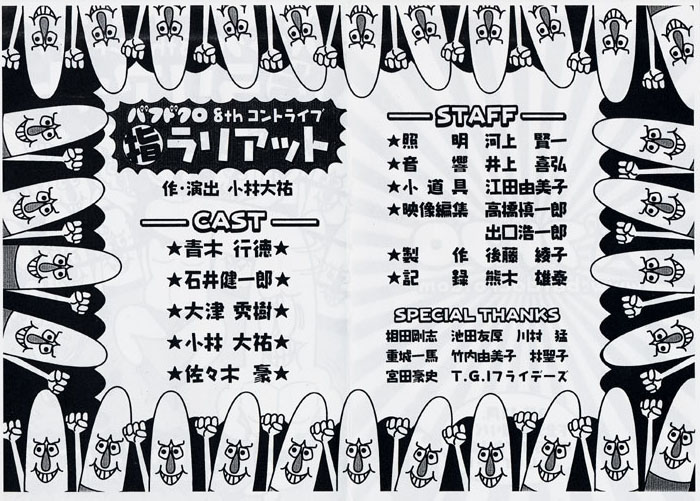 バフドクロ 8th コントライブ
指ラリアット
作・演出 小林大祐
CAST
★青木 行徳★
★石井健一郎★
★大津 秀樹★
★小林 大祐★
★佐々木 豪★
STAFF
★照 明 河上 賢一
★音 響 井上 喜弘
★小道具 江田由美子
★映像編集 高橋慎一郎
出口浩一郎
★製 作 後藤 綾子
★記 録 熊木 雄泰
SPECIAL THANKS
相田剛志 池田友厚 川村 猛
重城一馬 竹内由美子 林聖子
宮田豪史 T.G.Iフライデーズ